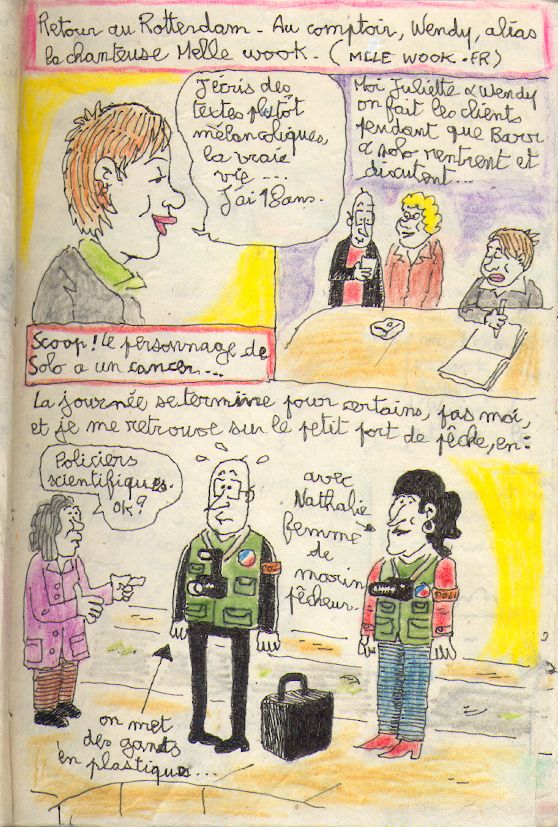 Retour au Rotterdam - Au comptoir, Wendy, alias
la chanteuse Melle wook. (MLLE WOOK.FR)
J'écris des
textes plutôt
mélancoliques,
la vraie
vie ...
J'ai 18 ans.
Moi Juliette & Wendy
on fait les clients
pendant que Barr
& Solo rentrent et
discutent...
Scoop! le personnage de
Solo a un cancer...
La journée se termine pour certains, pas moi,
et je me retrouve sur le petit port de pêche, en:
Policiers
scientifiques.
OK?
avec
Nathalie
femme
de
marin
pêcheur.
POLI
POLI
on met
des gants
en plastique...